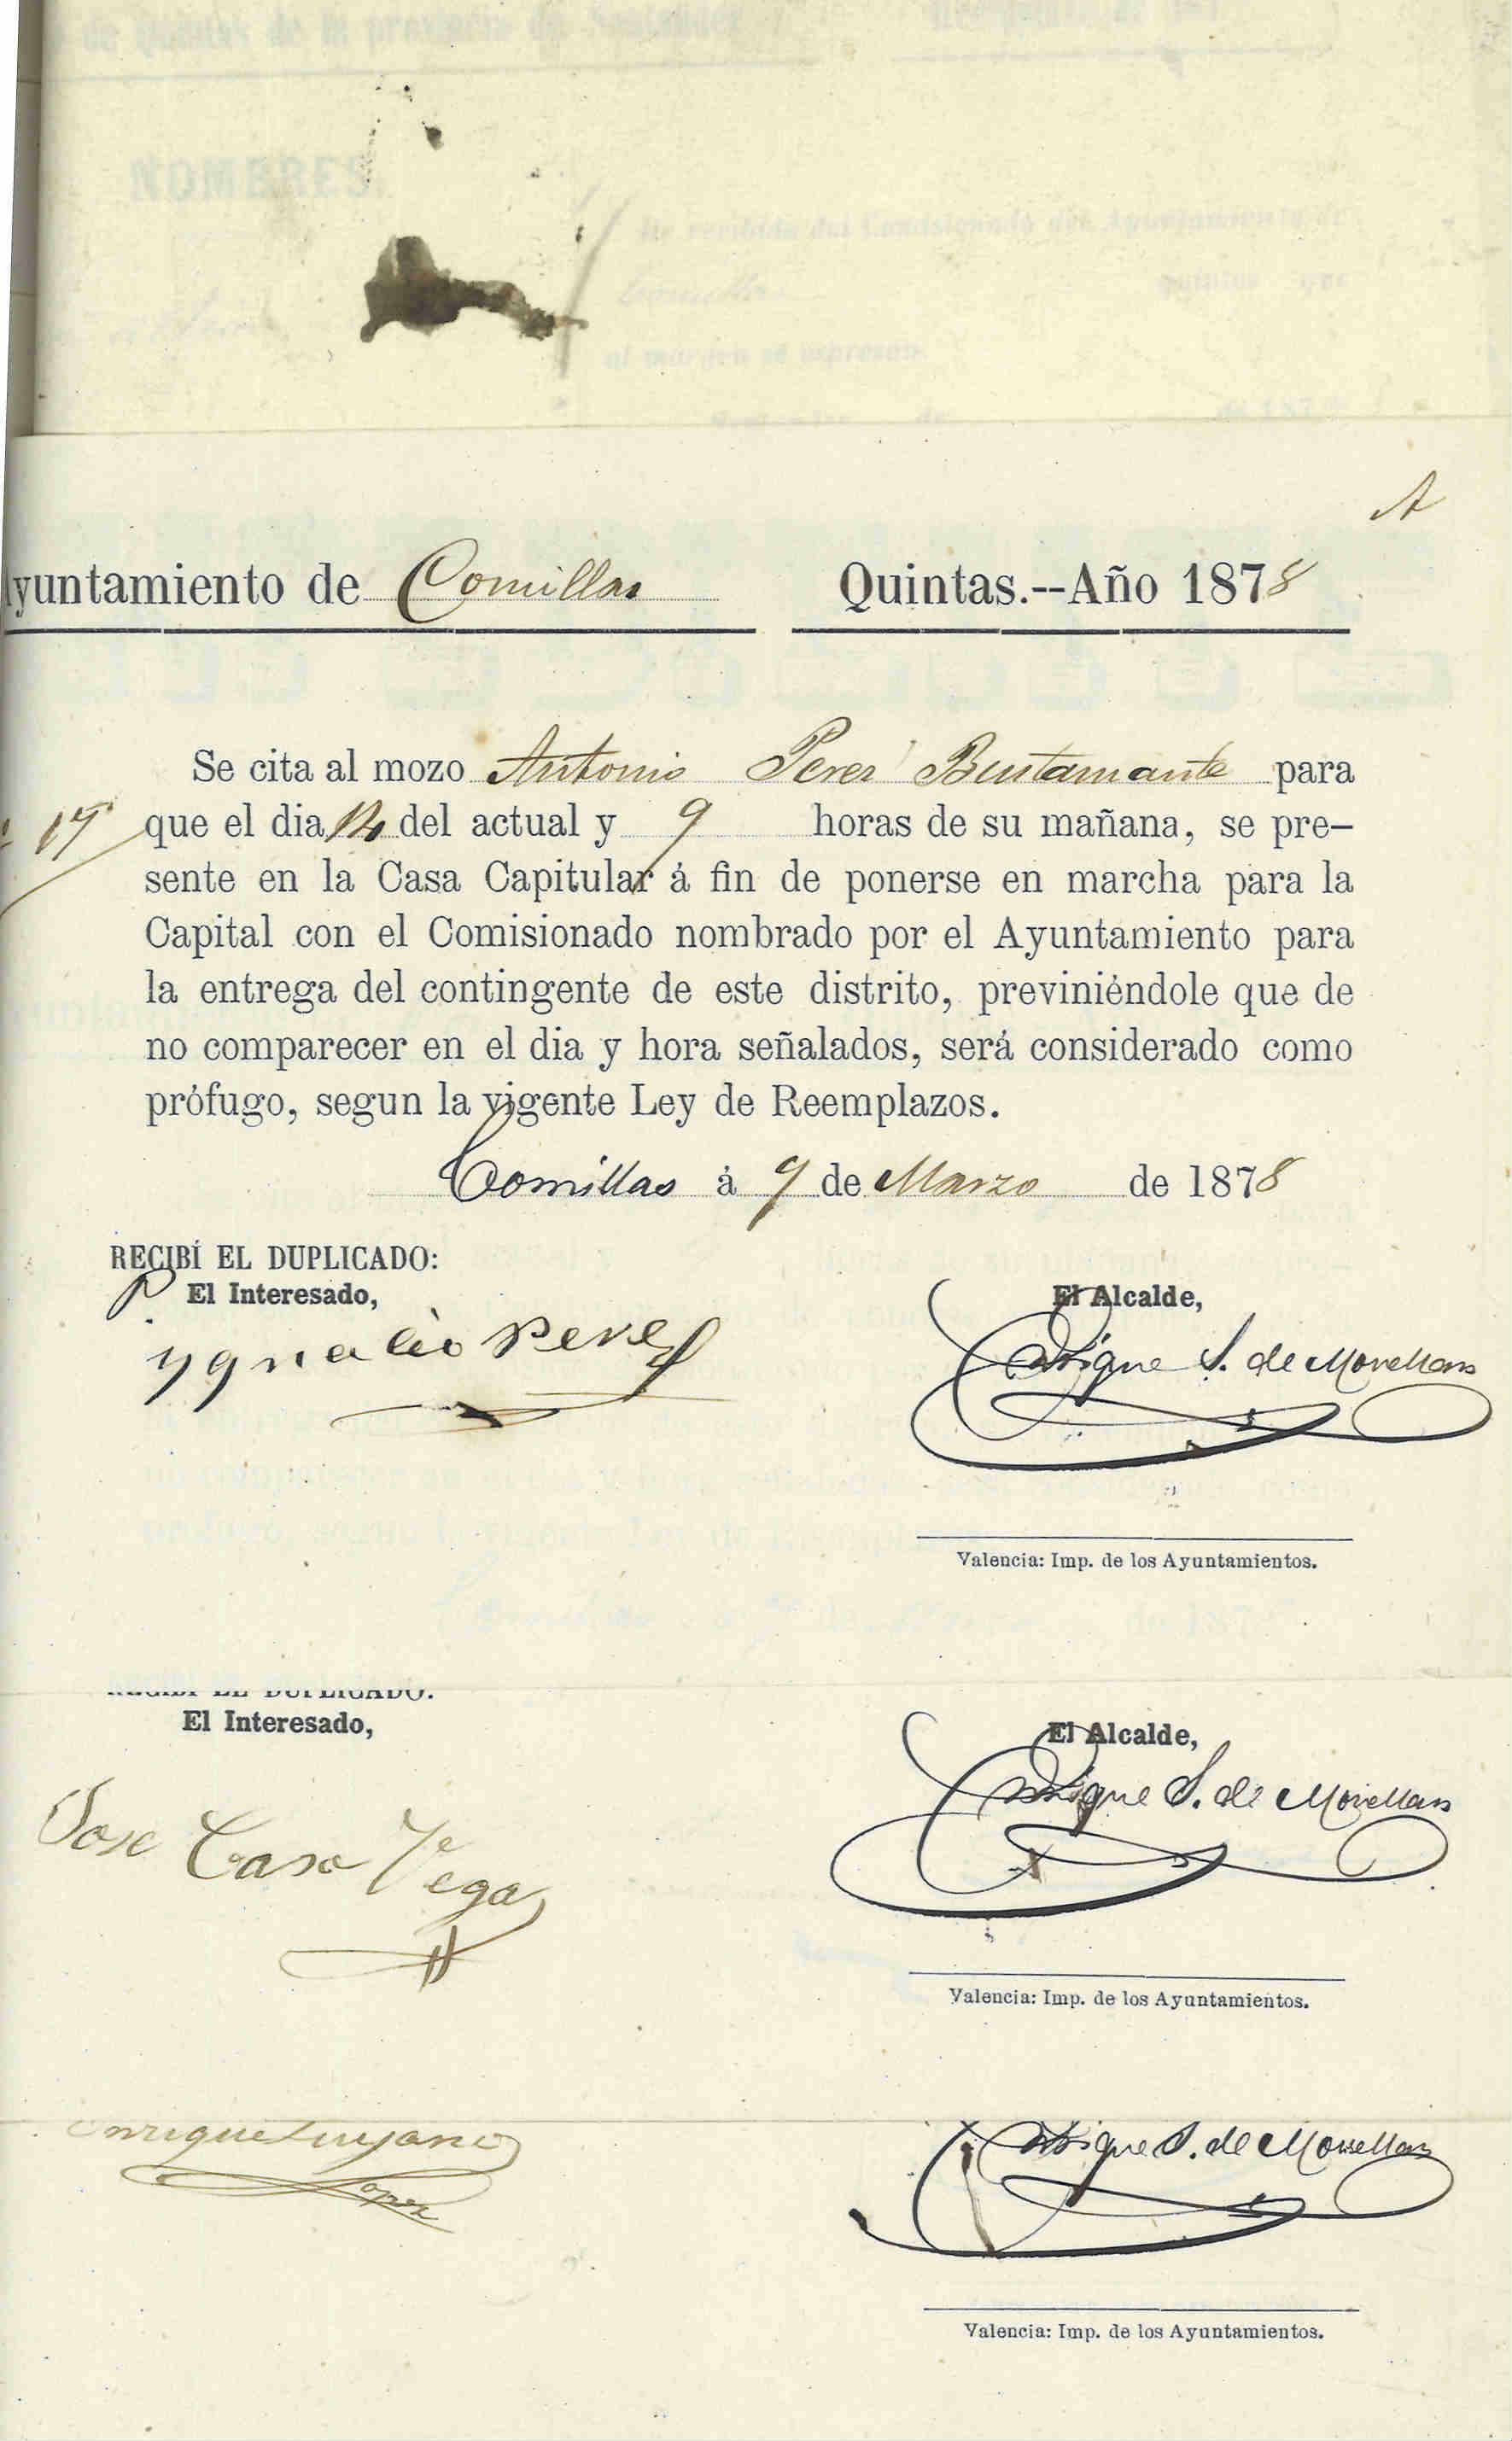 de Quintas de la provincia de Santander
NOMBRES
He recibido del Comisionado del Ayuntamiento de
Comillas quintos que
al margen se expresan.
de de 187
A
Ayuntamiento de Comillas Quintas.--Año 1878
Se cita al mozo Antonio Perez Bustamante para
17 que el dia 14 del actual y 9 horas de su mañana, se pre-
sente en la Casa Capitular á fin de ponerse en marcha para la
Capital con el Comisionado nombrado por el Ayuntamiento para
la entrega del contingente de este distrito, previniéndole que de
no comparecer en el dia y hora señalados, será considerado como
prófugo, segun la vigente Ley de Reemplazos.
Comillas á 9 de Marzo de 1878
RECIBÍ EL DUPLICADO:
P El Interesado, El Alcalde,
ygnacio perez Enrique S. de Movellan
Valencia: Imp. de los Ayuntamientos.
RECIBÍ EL DUPLICADO:
El Interesado, El Alcalde,
Jose Caso Vega Enrique S. de Movellan
Valencia: Imp. de los Ayuntamientos.
Enrique Enrique S. de Movellan
Lopez
Valencia: Imp. de los Ayuntamientos.